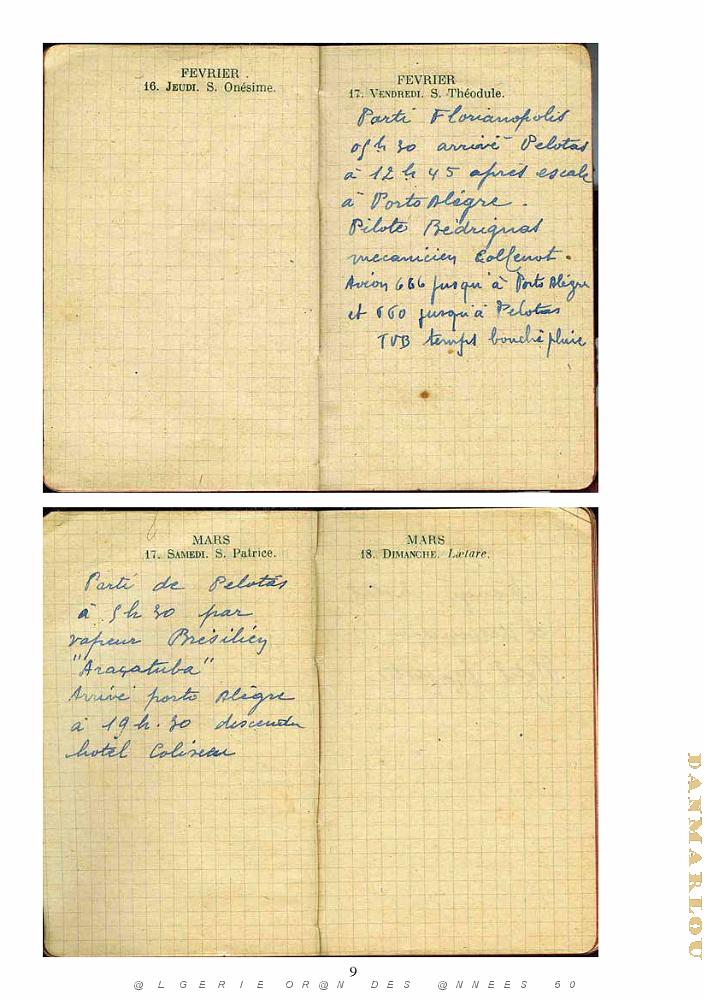 FEVRIER
16. JEUDI. S. Onésime.
FEVRIER
17. VENDREDI. S. Théodule.
Parti Florianopolis
05 h 30 arrivé Pelotas
à 12 h 45 après escale
à Porto Alègre.
Pilote Bédrignas
mecanicien Collenot.
Avion 666 jusqu'à Porto Alègre
et 660 jusqu'à Pelotas
TVB temps bouché pluie
MARS
17. SAMEDI. S. Patrice.
Parti de Pelotas
à 5 h 30 par
vapeur Brésilien
"Araçatuba"
Arrivé porto Alègre
à 19 h. 30 descendu
hotel Coliseu
MARS
18. DIMANCHE. Lætare.
DANMARLOU
9
@ L G E R I E O R @ N D E S @ N N E E S 5 0